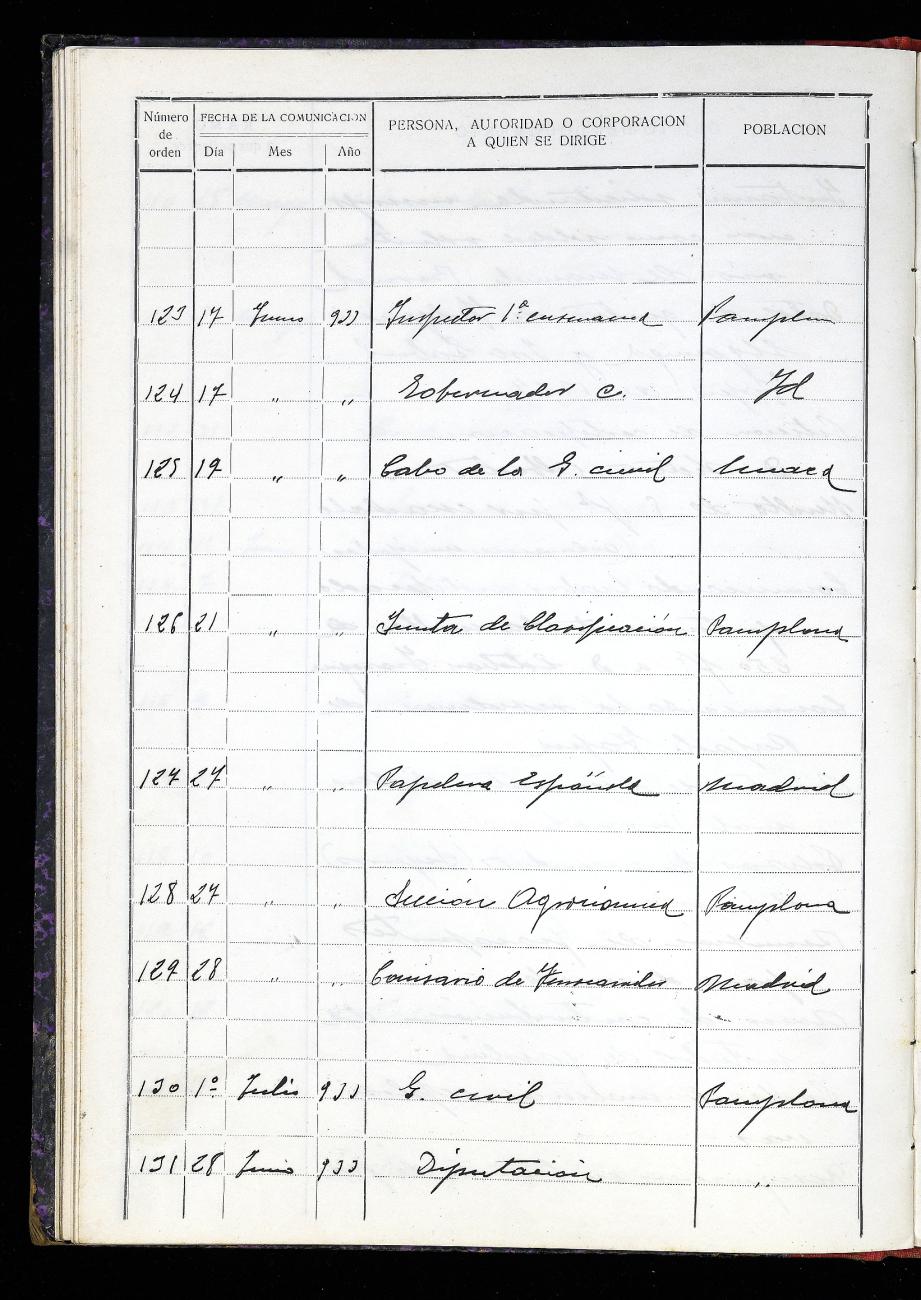 Número de orden | FECHA DE LA COMUNICACION | PERSONA, AUTORIDAD O CORPORACION A QUIEN SE DIRIGE | POBLACION
Día | Mes | Año
123 17 Junio 933 Inspector 1ª enseñanza Pamplona
124 17 " " Gobernador C. Id
125 19 " " Cabo de la G. civil
126 21 " " Junta de Clasificación Pamplona
127 27 " " Papelera Española Madrid
128 27 " " Sección Agronómica Pamplona
129 28 " " Comisario de Madrid
130 1º Julio 933 G. civil Pamplona
131 28 Junio 933 Diputación "